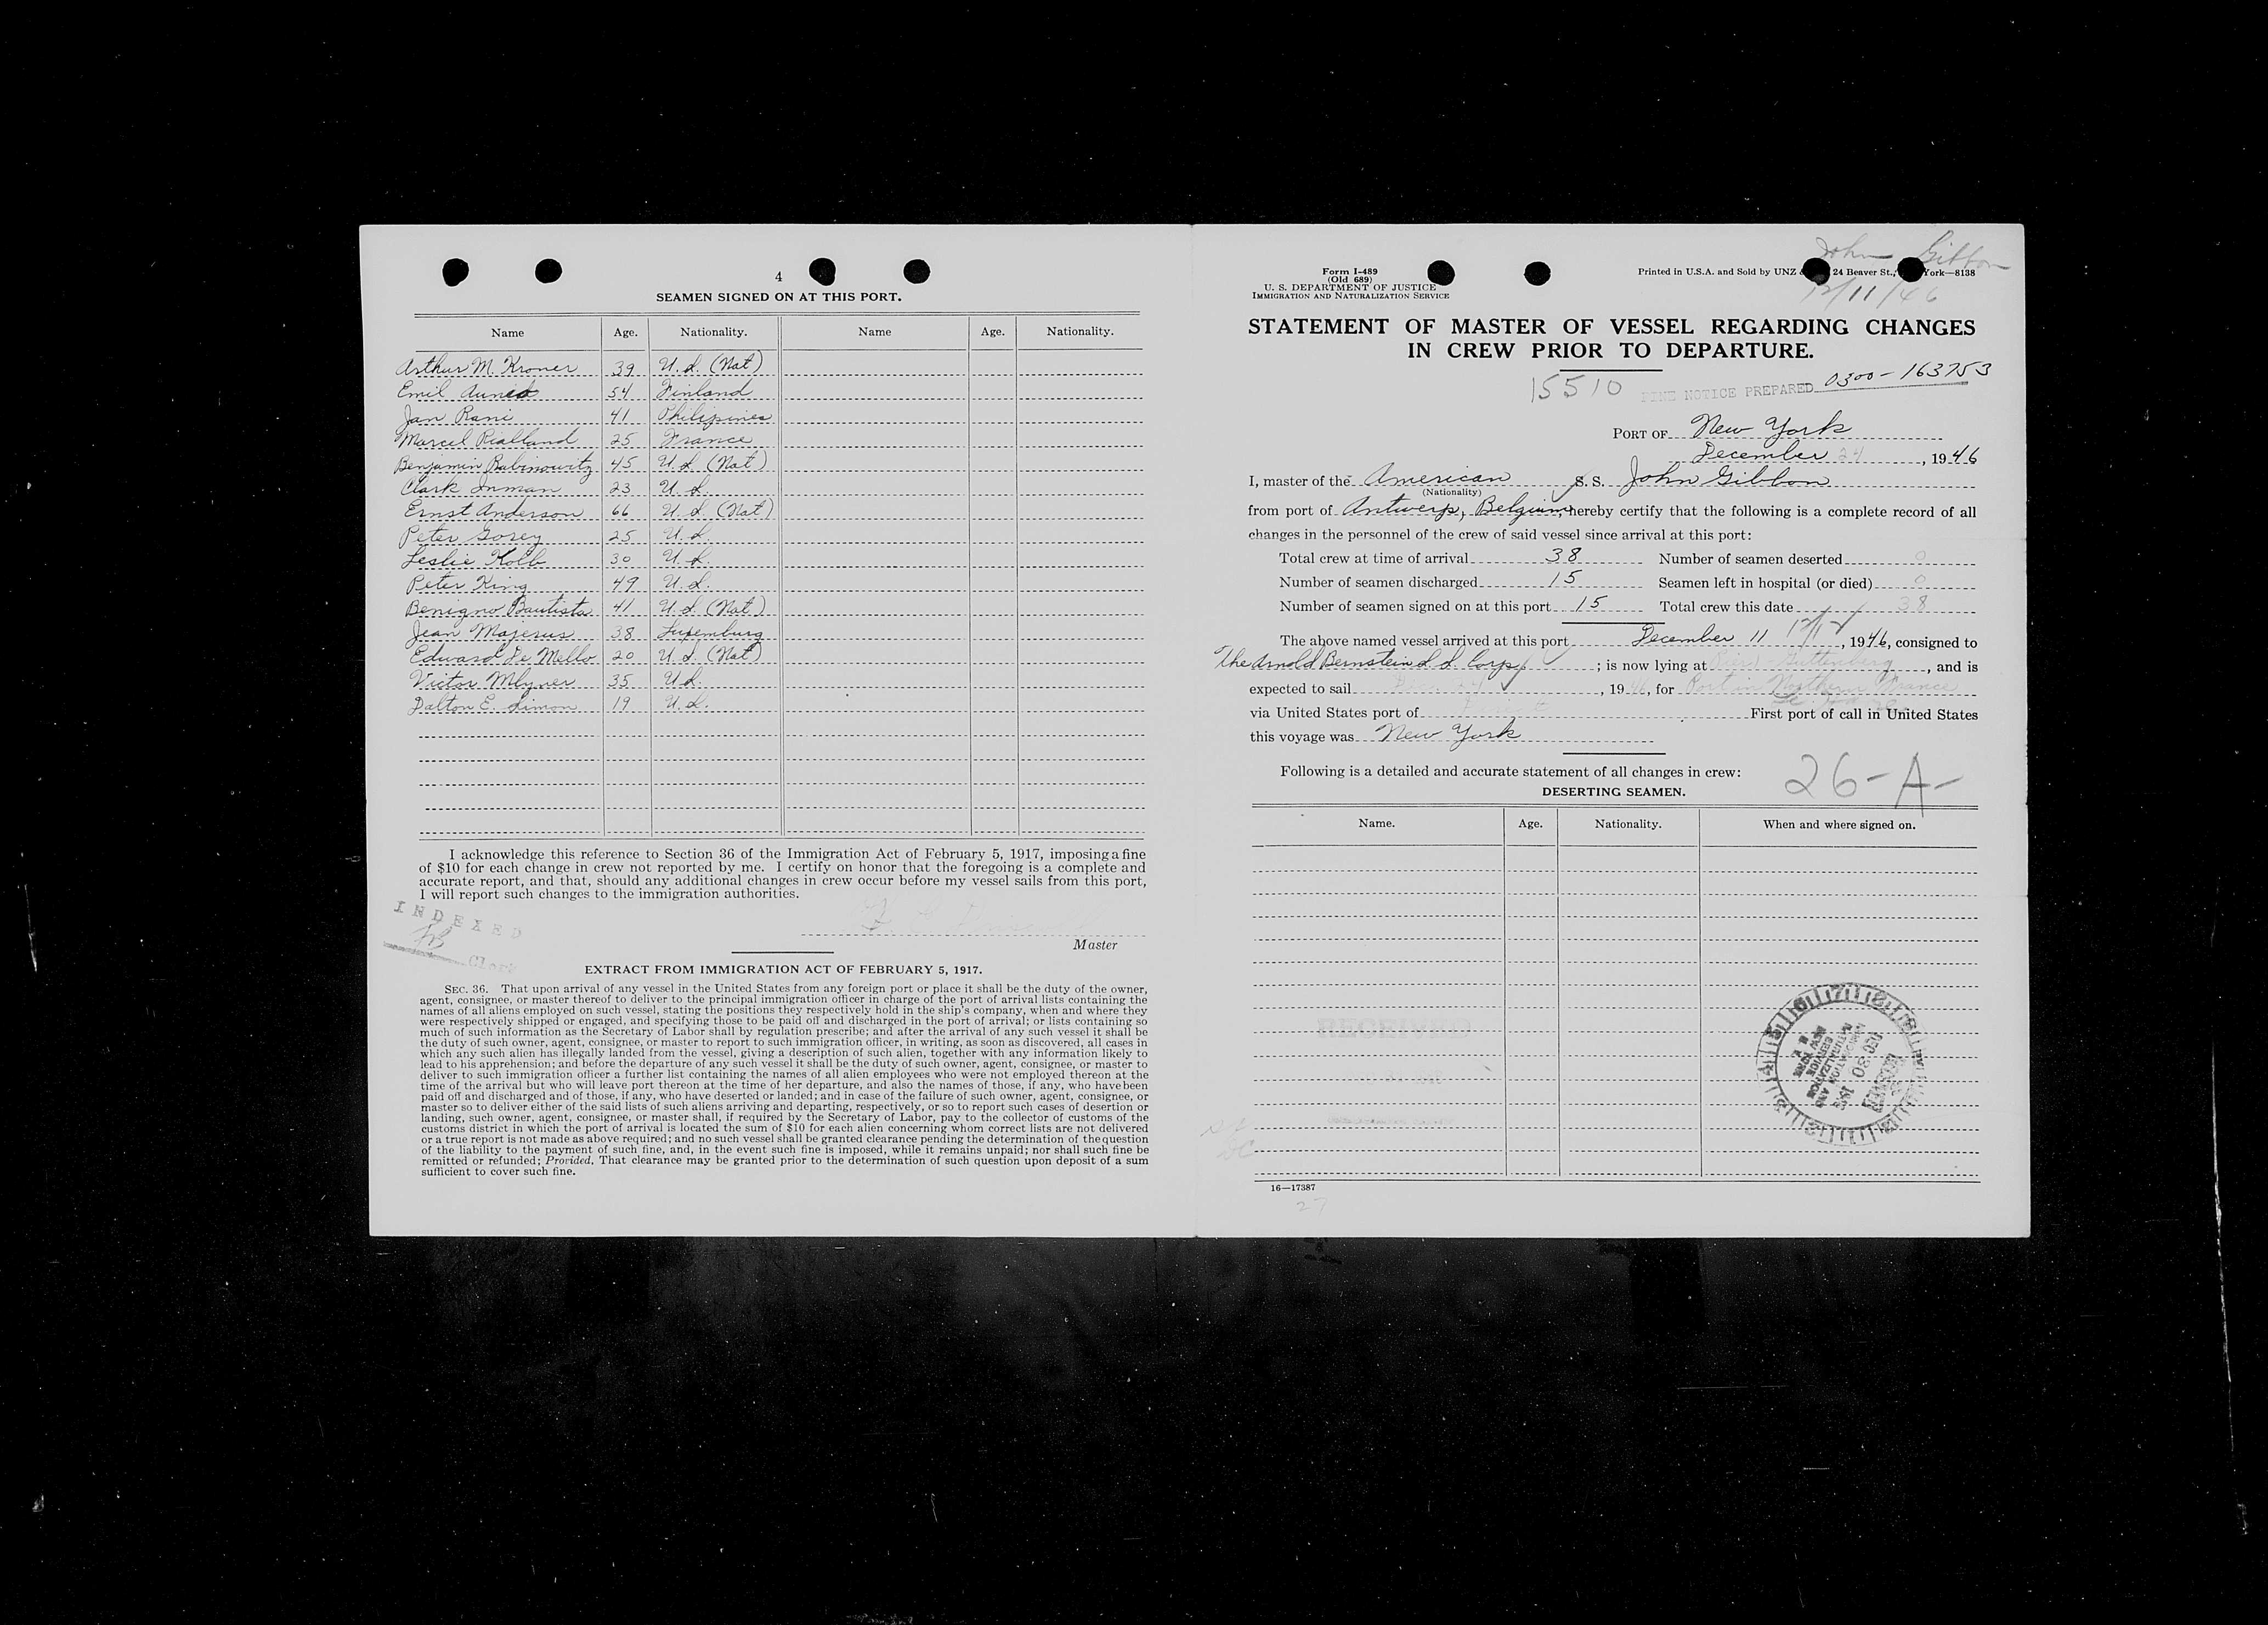 4
SEAMEN SIGNED ON AT THIS PORT.
Name Age. Nationality. Name Age. Nationality.
Arthur M. Kroner 39 U.S. (Nat)
Emil 54 Finland
Jan Rani 41 Philipines
Marcel Rialland 25 France
Benjamin Rabinowitz 45 U.S. (Nat)
Clark Inman 23 U.S.
Ernst Anderson 66 U.S. (Nat)
Peter Gorey 25 U.S.
Leslie Kolb 30 U.S.
Peter King 49 U.S.
Benigno Bautista 41 U.S. (Nat)
Jean Majerus 38 Luxemburg
Edward De Mello 20 U.S. (Nat)
Victor Mlyner 35 U.S.
Dalton E. Simon 19 U.S.
I acknowledge this reference to Section 36 of the Immigration Act of February 5, 1917, imposing a fine
of $10 for each change in crew not reported by me. I certify on honor that the foregoing is a complete and
accurate report, and that, should any additional changes in crew occur before my vessel sails from this port,
I will report such changes to the immigration authorities.
INDEXED
Clerk
Master
EXTRACT FROM IMMIGRATION ACT OF FEBRUARY 5, 1917.
SEC. 36. That upon arrival of any vessel in the United States from any foreign port or place it shall be the duty of the owner,
agent, consignee, or master thereof to deliver to the principal immigration officer in charge of the port of arrival lists containing the
names of all aliens employed on such vessel, stating the positions they respectively hold in the ship's company, when and where they
were respectively shipped or engaged, and specifying those to be paid off and discharged in the port of arrival; or lists containing so
much of such information as the Secretary of Labor shall by regulation prescribe; and after the arrival of any such vessel it shall be
the duty of such owner, agent, consignee, or master to report to such immigration officer, in writing, as soon as discovered, all cases in
which any such alien has illegally landed from the vessel, giving a description of such alien, together with any information likely to
lead to his apprehension; and before the departure of any such vessel it shall be the duty of such owner, agent, consignee, or master to
deliver to such immigration officer a further list containing the names of all alien employees who were not employed thereon at the
time of the arrival but who will leave port thereon at the time of her departure, and also the names of those, if any, who have been
paid off and discharged and of those, if any, who have deserted or landed; and in case of the failure of such owner, agent, consignee, or
master so to deliver either of the said lists of such aliens arriving and departing, respectively, or so to report such cases of desertion or
landing, such owner, agent, consignee, or master shall, if required by the Secretary of Labor, pay to the collector of customs of the
customs district in which the port of arrival is located the sum of $10 for each alien concerning whom correct lists are not delivered
or a true report is not made as above required; and no such vessel shall be granted clearance pending the determination of the question
of the liability to the payment of such fine, and, in the event such fine is imposed, while it remains unpaid; nor shall such fine be
remitted or refunded; Provided, That clearance may be granted prior to the determination of such question upon deposit of a sum
sufficient to cover such fine.
John Gibbon
12/11/46
Form I-489
(Old 689)
U. S. DEPARTMENT OF JUSTICE
IMMIGRATION AND NATURALIZATION SERVICE
Printed in U.S.A. and Sold by UNZ 24 Beaver St., York—8138
STATEMENT OF MASTER OF VESSEL REGARDING CHANGES
IN CREW PRIOR TO DEPARTURE.
15510 FINE NOTICE PREPARED 0300-163753
PORT OF New York
December 24, 1946
I, master of the American S. S. John Gibbon
(Nationality)
from port of Antwerp, Belgium, hereby certify that the following is a complete record of all
changes in the personnel of the crew of said vessel since arrival at this port:
Total crew at time of arrival 38 Number of seamen deserted 0
Number of seamen discharged 15 Seamen left in hospital (or died) 0
Number of seamen signed on at this port 15 Total crew this date 38
The above named vessel arrived at this port December 11 12/12, 1946, consigned to
The Arnold Bernstein S.S. Corp; is now lying at Guttenberg, and is
expected to sail Dec. 24, 1946, for Port in Northern France
via United States port of Direct First port of call in United States
this voyage was New York
Following is a detailed and accurate statement of all changes in crew:
26-A-
DESERTING SEAMEN.
Name. Age. Nationality. When and where signed on.
RECEIVED
RECEIVED
DEC 30
IMMIGRATION AND
NATURALIZATION
SERVICE
NEW YORK
N. Y.
16—17387
27